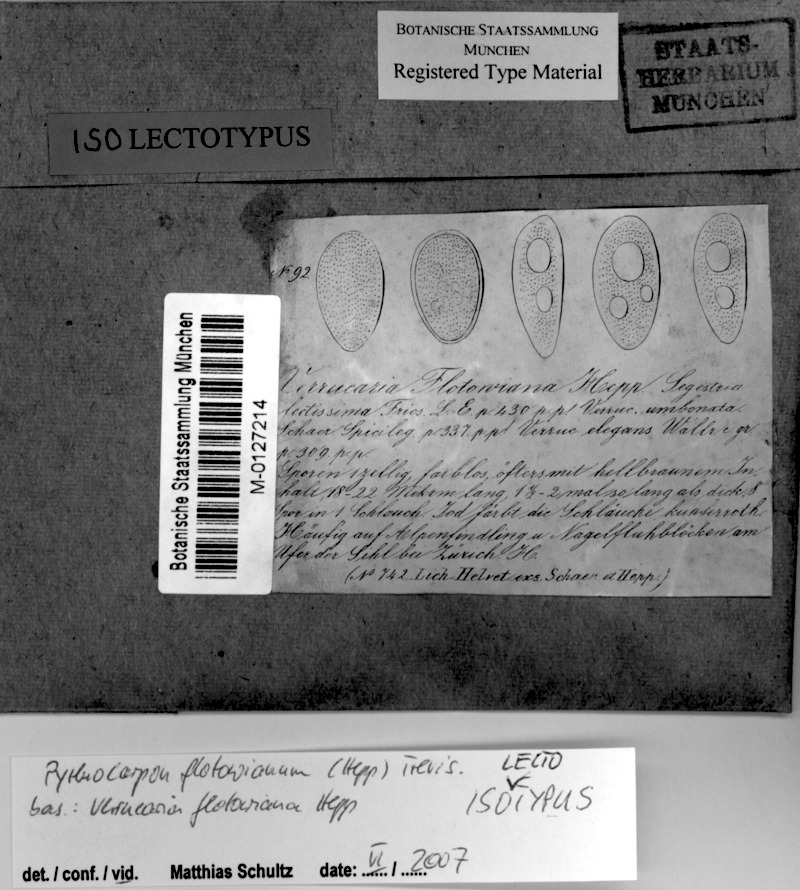 BOTANISCHE STAATSSAMMLUNG
MÜNCHEN
Registered Type Material
STAATS-
HERBARIUM
MÜNCHEN
ISO LECTOTYPUS
No 92
Botanische Staatssammlung München
M-0127214
Verrucaria Flotowiana Hepp. Segestria
lectissima Fries. L. E. p. 430 p. p.! Verruc. umbonata
Schaer Spicileg. p. 337. p.p! Verruc. elegans Wallr. c. gr.
p. 309. p. p.
Sporen 1zellig, farblos, öfters mit hellbraunem In-
halt 18-22 Mikrm. lang, 1½-2 mal so lang als dick, 8
Spor. in 1 Schlauch. Jod färbt die Schläuche kupferroth.
Häufig auf Alpenfindling u. Nagelfluhblöcken am
Ufer der Sihl bei Zürich H.
(No 742 Lich. Helvet. exs. Schaer. et Hepp.)
Pyrenocarpon flotowianum (Hepp) Trevis.
LECTO
bas.: Verrucaria flotowiana Hepp
ISOTYPUS
det. / conf. / vid. Matthias Schultz date: VI / 2007